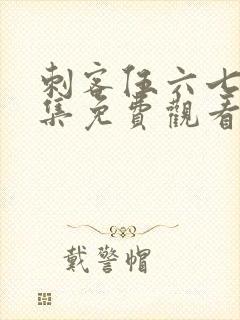 刺客伍六七
集免費觀看
戴警帽